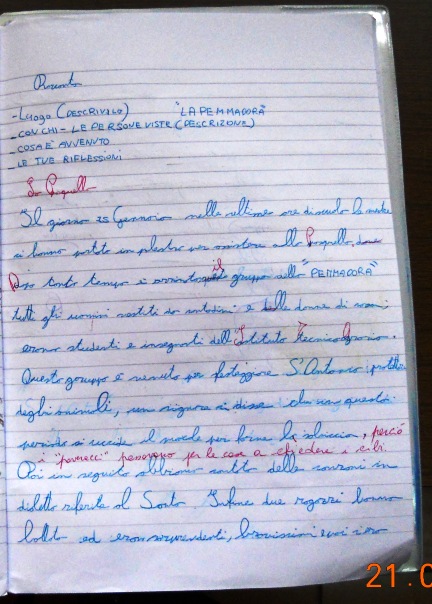 Racconto
- Luogo (DESCRIVILO) "LA PEMMADORA"
- CON CHI - LE PERSONE VISTE (DESCRIZIONE)
- COSA È AVVENUTO
- LE TUE RIFLESSIONI
La Pasquella
Il giorno 25 Gennaio nelle ultime ore di scuola le
ci hanno portato in palestra per assistere alla Pasquella, dove
Dopo tanto tempo è arrivato il gruppo della "PEMMADORA"
tutti gli uomini vestiti da contadini e delle donne di
erano studenti e insegnanti dell'Istituto Tecnico Agrario.
Questo gruppo è venuto per festeggiare S'Antonio protettore
degli animali, un signore ci disse che in questo
periodo si uccide il maiale per farne la salsiccia, perciò
i "parracci" passavano per le case a chiedere i cibi.
Poi in seguito abbiamo sentito delle canzoni in
dialetto riferite al Santo. Infine due ragazzi hanno
ballato ed erano sorprendenti, bravissimi
21.0